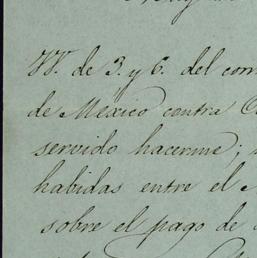 VV. de 3. y 6. del corr
de Mexico contra
servido hacerme;
habidas entre el
sobre el pago de